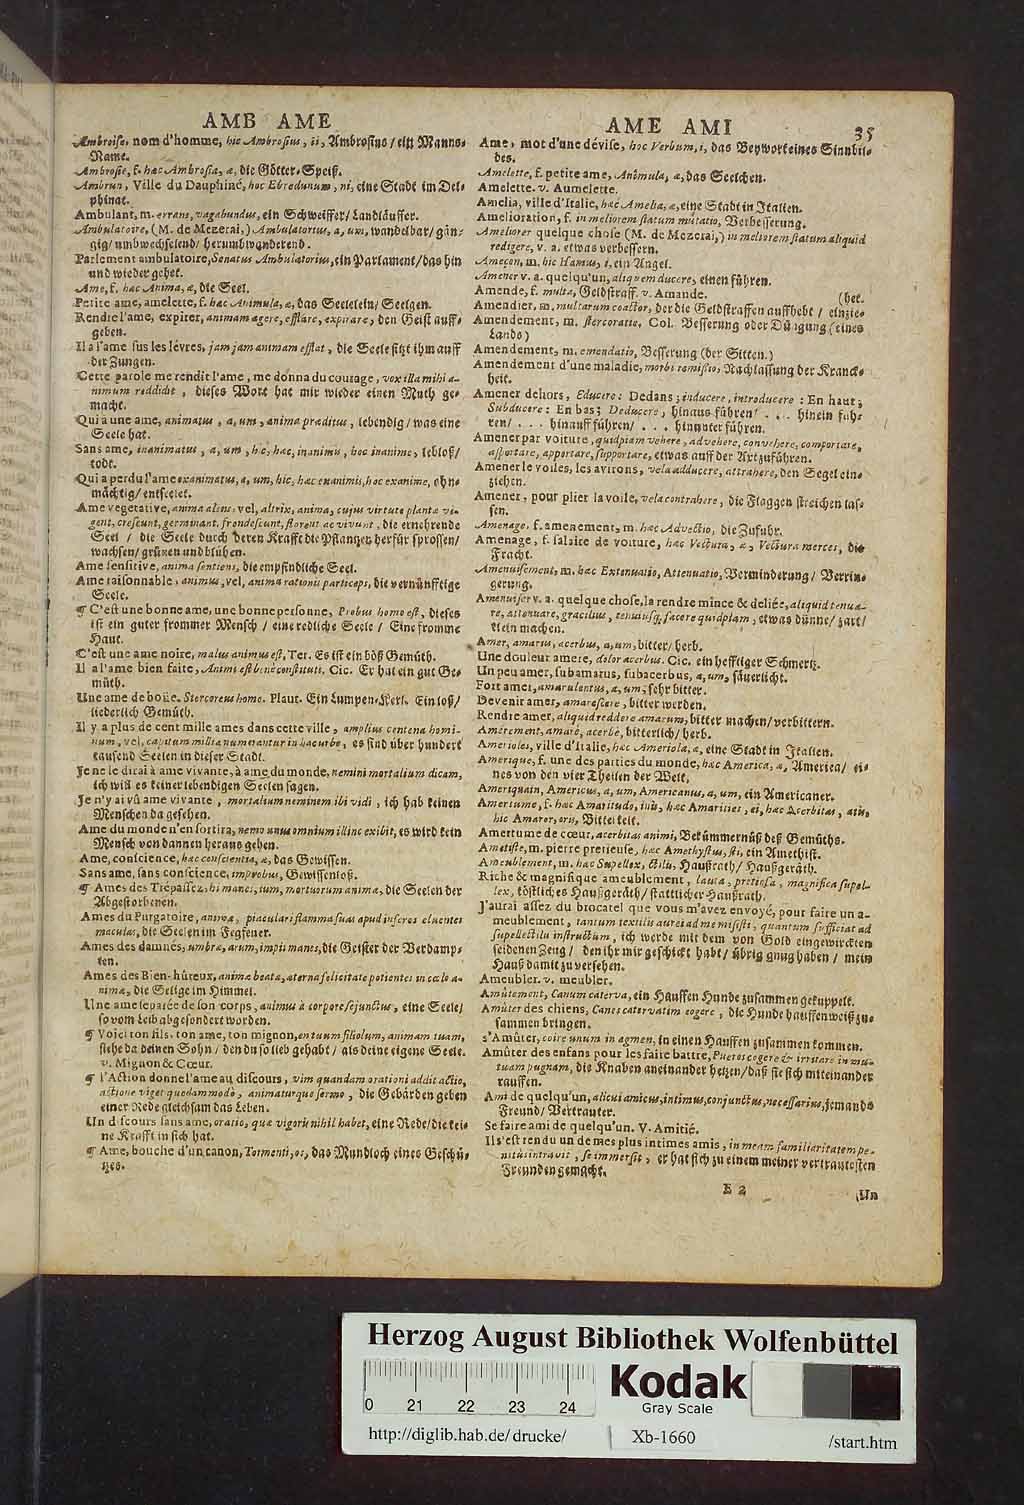 AMB AME
Ambroise, nom d'homme, hic Ambrosius, ii, Ambrosius / ein Manns-
Name.
Ambrosie, f. hæc Ambrosia, æ, die Götter-Speiß.
Ambrun, Ville du Dauphiné, hoc Ebredunum, ni, eine Stadt im Del-
phinat.
Ambulant, m. errans, vagabundus, ein Schweiffer / Landläuffer.
Ambulatoire, (M. de Mezerai,) Ambulatorius, a, um, wandelbar / gän-
gig / umbwechselend / herumbwanderend.
Parlement ambulatoire, Senatus Ambulatorius, ein Parlament / das hin
und wieder gehet.
Ame, f. hæc Anima, æ, die Seel.
Petite ame, amelette, f. hæc Animula, æ, das Seelelein / Seelgen.
Rendre l'ame, expirer, animam agere, efflare, expirare, den Geist auff-
geben.
Il a l'ame sus les lévres, jam jam animam efflat, die Seele sitzt ihm auff
der Zungen.
Cette parole me rendit l'ame, me donna du courage, vox illa mihi a-
nimum reddidit, dieses Wort hat mir wieder einen Muth ge-
macht.
Qui a une ame, animatus, a, um, anima præditus, lebendig / was eine
Seele hat.
Sans ame, inanimatus, a, um, hic, hæc, inanimis, hoc inanime, leblos /
todt.
Qui a perdu l'ame exanimatus, a, um, hic, hæc exanimis, hoc exanime, ohn-
mächtig / entseelet.
Ame vegetative, anima alens, vel, altrix, anima, cujus virtute plantæ vi-
gent, crescunt, germinant, frondescunt, florent ac vivunt, die ernehrende
Seel / die Seele durch deren Krafft die Pflantzen herfür sprossen /
wachsen / grünen und blühen.
Ame sensitive, anima sentiens, die empfindliche Seel.
Ame raisonnable, animus, vel, anima rationis particeps, die vernünfftige
Seele.
¶ C'est une bonne ame, une bonne personne, Probus homo est, dieses
ist ein guter frommer Mensch / eine redliche Seele / Eine fromme
Haut.
C'est une ame noire, malus animus est, Ter. Es ist ein böß Gemüth.
Il a l'ame bien faite, Animi est bene constituti. Cic. Er hat ein gut Ge-
müth.
Une ame de boüe. Stercoreus homo. Plaut. Ein Lumpen-Kerl. Ein loß /
liederlich Gemüth.
Il y a plus de cent mille ames dans cette ville, amplius centena homi-
num, vel, capitum millia numerantur in hac urbe, es sind über hundert
tausend Seelen in dieser Stadt.
Je ne le dirai à ame vivante, à ame du monde, nemini mortalium dicam,
ich will es keiner lebendigen Seelen sagen.
Je n'y ai vû ame vivante, mortalium neminem ibi vidi, ich hab keinen
Menschen da gesehen.
Ame du monde n'en sortira, nemo unus omnium illinc exibit, es wird kein
Mensch von dannen heraus gehen.
Ame, conscience, hæc conscientia, æ, das Gewissen.
Sans ame, sans conscience, improbus, Gewissenloß.
¶ Ames des Trépassez, hi manes, ium, mortuorum animæ, die Seelen der
Abgestorbenen.
Ames du Purgatoire, animæ, piaculari flamma suas apud inferos eluentes
maculas, die Seelen im Fegfeuer.
Ames des damnés, umbræ, arum, impii manes, die Geister der Verdamp-
ten.
Ames des Bien-hûreux, animæ beatæ, æterna felicitate potientes in cœlo a-
nimæ, die Selige im Himmel.
Une ame separée de son corps, animus à corpore sejunctus, eine Seele /
so vom Leib abgesondert worden.
¶ Voici ton fils, ton ame, ton mignon, en tuum filiolum, animam tuam,
siehe da deinen Sohn / den du so lieb gehabt / als deine eigene Seele.
v. Mignon & Cœur.
¶ l'Action donne l'ame au discours, vim quandam orationi addit actio,
actione viget quodammodo, animaturque sermo, die Gebärden geben
einer Rede gleichsam das Leben.
Un discours sans ame, oratio, quæ vigoris nihil habet, eine Rede / die kei-
ne Krafft in sich hat.
¶ Ame, bouche d'un canon, Tormenti, os, das Mundloch eines Geschü-
tzes.
AME AMI 35
Ame, mot d'une dévise, hoc Verbum, i, das Beywort eines Sinnbil-
des.
Amelette, f. petite ame, Animula, æ, das Seelchen.
Amelette. v. Aumelette.
Amelia, ville d'Italie, hæc Amelia, æ, eine Stadt in Italien.
Amelioration, f. in meliorem statum mutatio, Verbesserung.
Ameliorer quelque chose (M. de Mezerai,) in meliorem statum aliquid
redigere, v. a. etwas verbessern.
Ameçon, m. hic Hamus, i, ein Angel.
Amener v. a. quelqu'un, aliquem ducere, einen führen.
Amende, f. multa, Geldstraff. v. Amande. (bet.
Amendier, m. multarum coactor, der die Geldstraffen auffhebt / einzie-
Amendement, m. stercoratio, Col. Besserung oder Düngung (eines
Lands)
Amendement, m. emendatio, Besserung (der Sitten.)
Amendement d'une maladie, morbi remissio, Nachlassung der Kranck-
heit.
Amener dehors, Educere: Dedans; inducere, introducere: En haut;
Subducere: En bas; Deducere, hinaus führen / . . . hinein füh-
ren / . . . hinauff führen / . . . hinunter führen.
Amener par voiture, quidpiam vehere, advehere, convehere, comportare,
asportare, apportare, supportare, etwas auff der Axt zuführen.
Amener le voiles, les avirons, vela adducere, attrahere, den Segel ein-
ziehen.
Amener, pour plier la voile, vela contrahere, die Flaggen streichen las-
sen.
Amenage, f. amenement, m. hæc Advectio, die Zufuhr.
Amenage, f. salaire de voiture, hæc Vectura, æ, Vecturæ merces, die
Fracht.
Amenuisement, m. hæc Extenuatio, Attenuatio, Verminderung / Verrin-
gerung.
Amenuiser v. a. quelque chose, la rendre mince & deliée, aliquid tenua-
re, attenuare, gracilius, tenuiusq; facere quidpiam, etwas dünne / zart /
klein machen.
Amer, amarus, acerbus, a, um, bitter / herb.
Une douleur amere, dolor acerbus. Cic. ein hefftiger Schmertz.
Un peu amer, subamarus, subacerbus, a, um, säuerlicht.
Fort amer, amarulentus, a, um, sehr bitter.
Devenir amer, amarescere, bitter werden.
Rendre amer, aliquid reddere amarum, bitter machen / verbittern.
Amèrement, amarè, acerbè, bitterlich / herb.
Amerioles, ville d'Italie, hæc Ameriola, æ, eine Stadt in Italien.
Amerique, f. une des parties du monde, hæc America, æ, America / ei-
nes von den vier Theilen der Welt.
Ameriquain, Americus, a, um, Americanus, a, um, ein Americaner.
Amertume, f. hæc Amaritudo, inis, hæc Amarities, ei, hæc Acerbitas, atis,
hic Amaror, oris, Bitterkeit.
Amertume de cœur, acerbitas animi, Bekümmernüß deß Gemüths.
Ametiste, m. pierre pretieuse, hæc Amethystus, sti, ein Amethist.
Ameublement, m. hæc Supellex, ctilis, Haußrath / Haußgeräth.
Riche & magnifique ameublement, lauta, pretiosa, magnifica supel-
lex, köstliches Haußgeräth / stattlicher Haußrath.
J'aurai assez du brocatel que vous m'avez envoyé, pour faire un a-
meublement, tantum textilis aurei ad me misisti, quantum sufficiat ad
supellectilis instructum, ich werde mit dem von Gold eingewirckten
seidenen Zeug / den ihr mir geschickt habt / übrig gnug haben / mein
Hauß damit zu versehen.
Ameubler. v. meubler.
Amûtement, Canum caterva, ein Hauffen Hunde zusammen gekuppelt.
Amûter des chiens, Canes catervatim cogere, die Hunde hauffenweiß zu-
sammen bringen.
s'Amûter, coire unum in agmen, in einen Hauffen zusammen kommen.
Amûter des enfans pour les faire battre, Pueros cogere & irritare in mu-
tuam pugnam, die Knaben aneinander hetzen / daß sie sich miteinander
rauffen.
Ami de quelqu'un, alicui amicus, intimus, conjunctus, necessarius, jemands
Freund / Vertrauter.
Se faire ami de quelqu'un. V. Amitié.
Il s'est rendu un de mes plus intimes amis, in meam familiaritatem pe-
nitùs intravit, se immersit, er hat sich zu einem meiner vertrautesten
Freunden gemacht.
E 2
Un
Herzog August Bibliothek Wolfenbüttel
0 21 22 23 24
Kodak
Gray Scale
http://diglib.hab.de/drucke/
Xb-1660
/start.htm